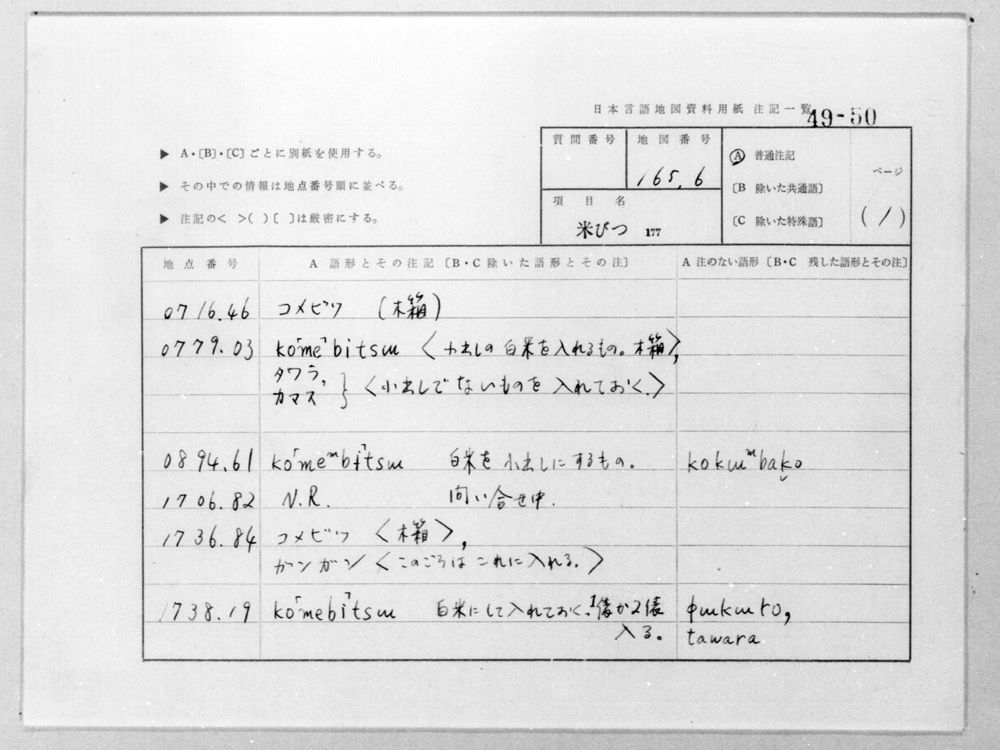 日本言語地図資料用紙 注記一覧
49-50
▶ A・〔B〕・〔C〕ごとに別紙を使用する。
▶ その中での情報は地点番号順に並べる。
▶ 注記の< >( )[ ]は厳密にする。
質問番号
地図番号
165,6
項目名
米びつ 177
Ⓐ 普通注記
〔B 除いた共通語〕
〔C 除いた特殊語〕
ページ
(1)
地点番号 A 語形とその注記〔B・C 除いた語形とその注〕 A 注のない語形〔B・C 残した語形とその注〕
0716.46 コメビツ (木箱)
0779.03 ko｢me｣bitsɯ <小出しの白米を入れるもの。木箱>,
タワラ,
カマス } <小出しでないものを入れておく.>
0894.61 ko｢meᵐbi｣tsɯ 白米を小出しにするもの. kokɯᵐbako
1706.82 N.R. 問い合せ中.
1736.84 コメビツ <木箱>,
ガンガン <このごろはこれに入れる.>
1738.19 ko｢mebi｣tsɯ 白米にして入れておく.1俵か2俵 ɸɯkɯro,
入る。 tawara